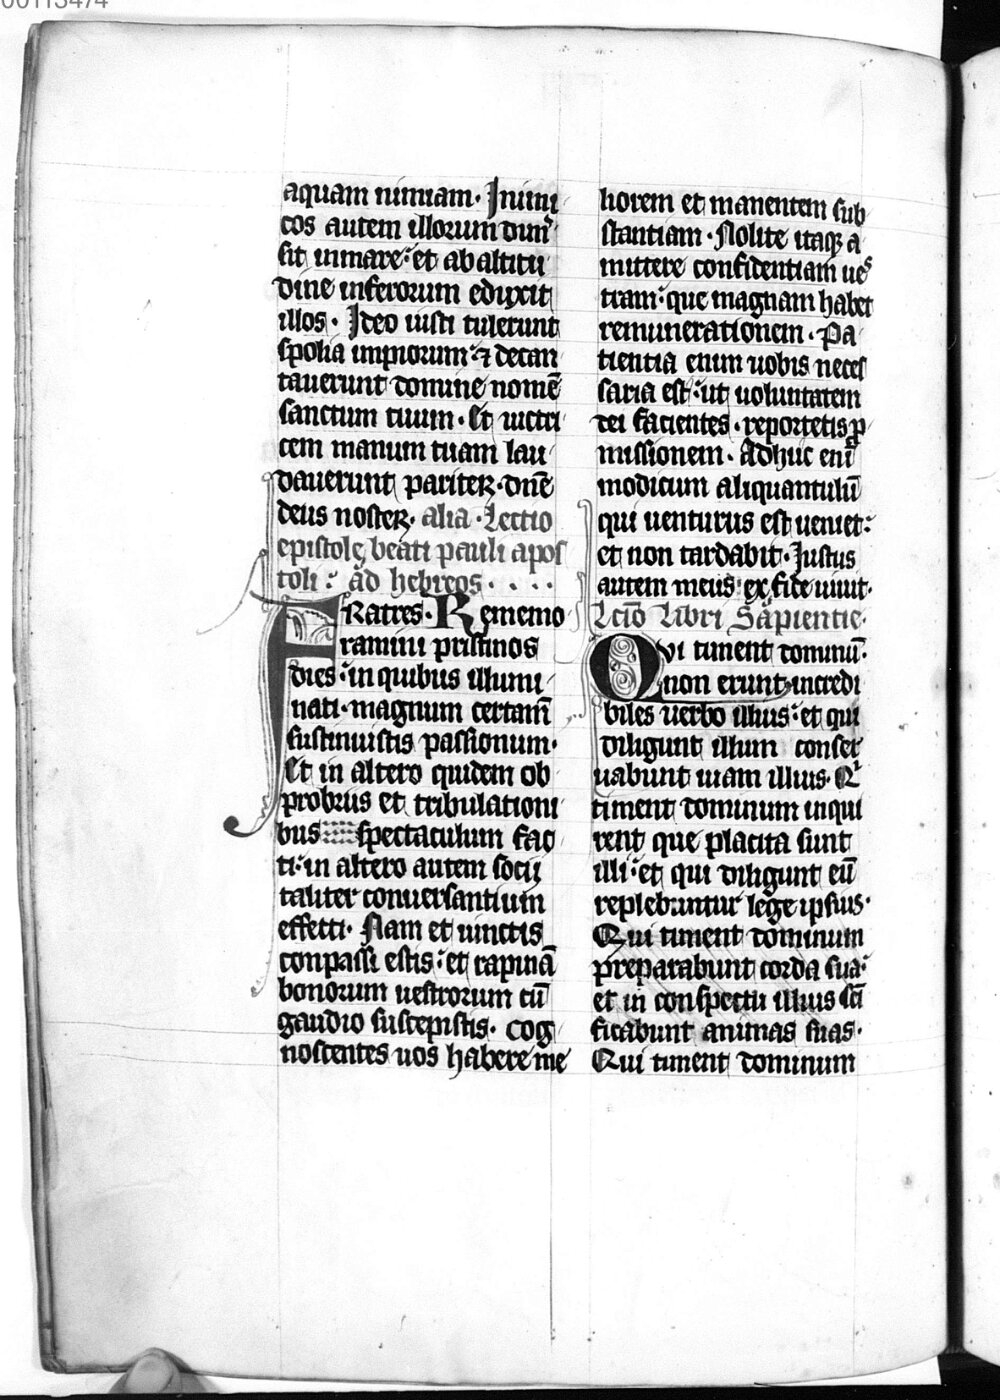 00113474
aquam nimiam· Inimi
cos autem illorum dim̄
sit in mare· et ab altitu
dine inferorum eduxit
illos· Ideo iusti tulerunt
spolia impiorum· ⁊ decan
tauerunt domine nomē
sanctum tuum· Et uictri
cem manum tuam lau
dauerunt pariter· dn̄e
deus noster· alia· Lectio
epistole beati pauli apos
toli· ad hebreos····
FRatres· Rememo
ramini pristinos
dies· in quibus illumi
nati· magnum certam̄
sustinuistis passionum·
Et in altero quidem ob
probriis et tribulationi
bus spectaculum fac
ti· in altero autem socii
taliter conuersantium
effecti· Nam et uinctis
conpassi estis· et rapinā
bonorum uestrorum cū
gaudio suscepistis· Cog
noscentes uos habere me
liorem et manentem sub
stantiam· Nolite itaqꝫ a
mittere confidentiam ues
tram· que magnam habet
remunerationem· Pa
tientia enim uobis neces
saria est· ut uoluntatem
dei facientes· reportetis ꝓ
missionem· Adhuc eni̅
modicum aliquantulū
qui uenturus est ueniet·
et non tardabit· Iustus
autem meus ex fide uiuit·
Lc̄io Libri Sapientie·
QVi timent dominū·
non erunt incredi
biles uerbo illius· et qui
diligunt illum conser
uabunt uiam illius· Qͥ
timent dominum inqui
rent que placita sunt
illi· et qui diligunt eū
replebuntur lege ipsius·
Qui timent dominum
preparabunt corda sua·
et in conspectu illius sc̄i
ficabunt animas suas·
Qui timent dominum